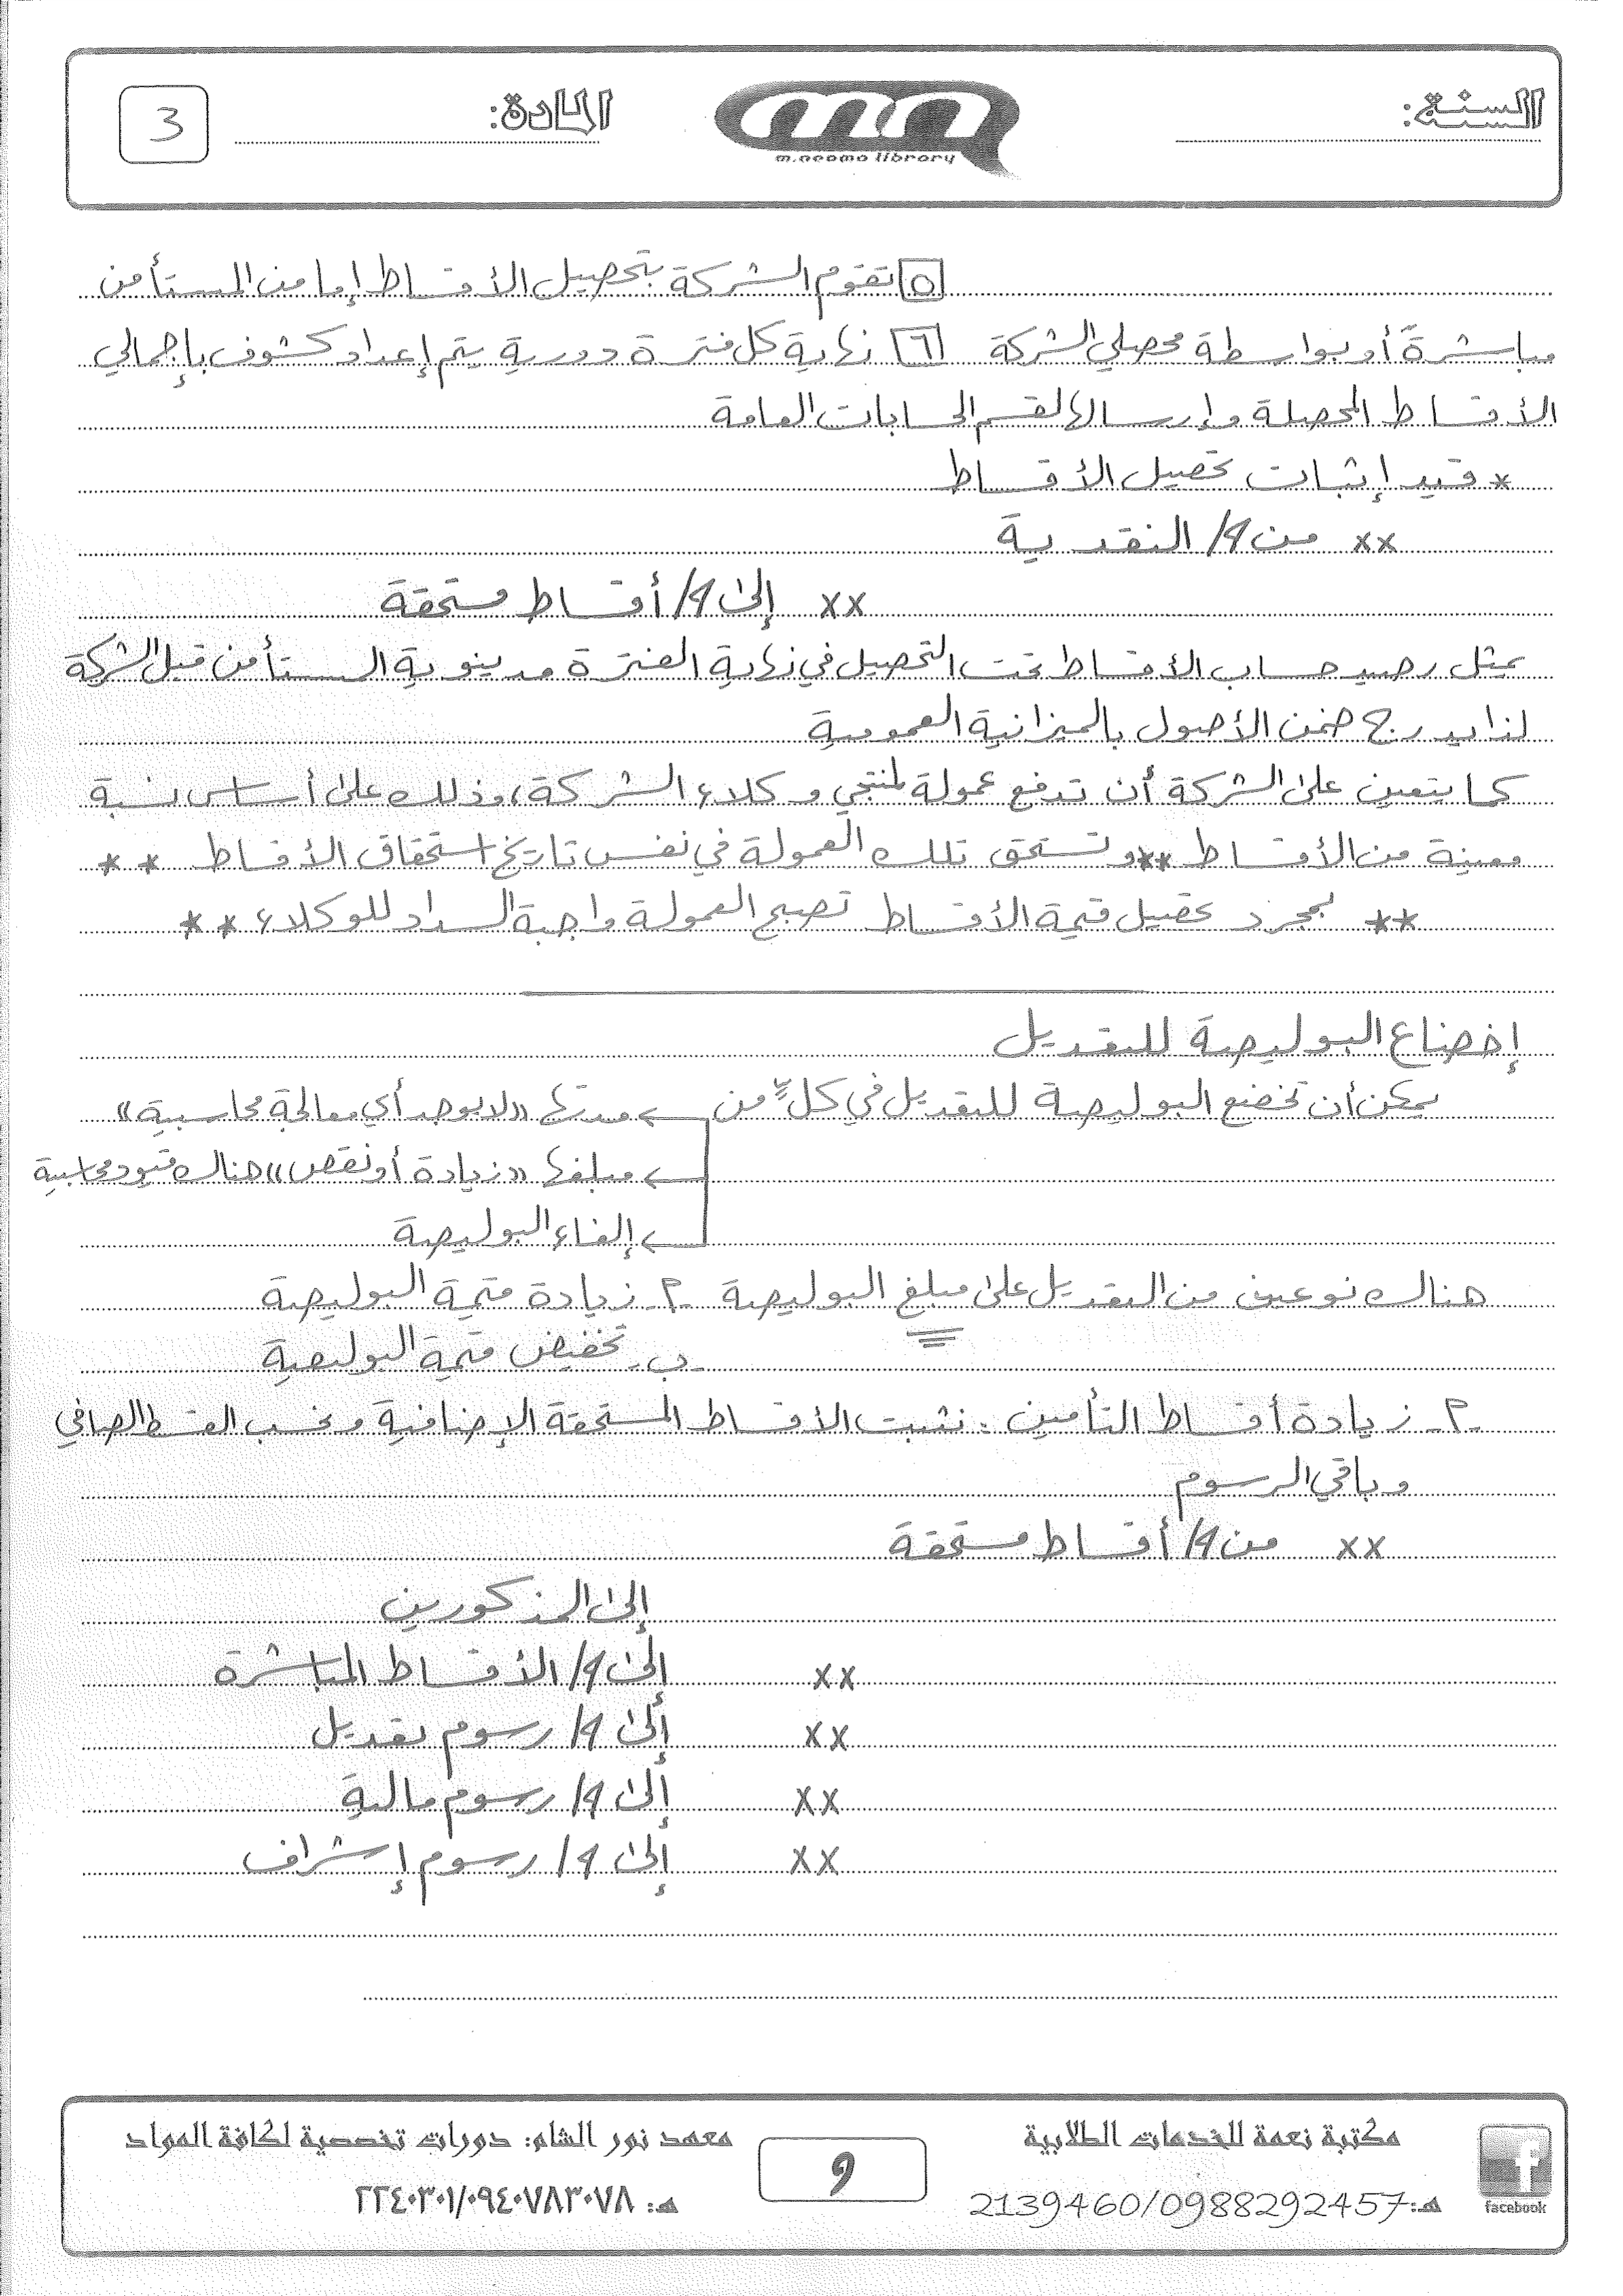 السنة:
m.neoma library
المادة:
3
5 تقوم الشركة بتحصيل الأقساط إما من المستأمن
مباشرةً أو بواسطة محصلي الشركة 6 نهاية كل فترة دورية يتم إعداد كشوف بإجمالي
الأقساط المحصلة وإرسالها لقسم الحسابات العامة
* قيد إثبات تحصيل الأقساط
×× من ح/ النقدية
×× إلى ح/ أقساط مستحقة
يمثل رصيد حساب الأقساط تحت التحصيل في نهاية الفترة مديونية المستأمن قبل الشركة
لذا يدرج ضمن الأصول بالميزانية العمومية
كما يتعين على الشركة أن تدفع عمولة لمنتجي وكلاء الشركة، وذلك على أساس نسبة
معينة من الأقساط ** وتستحق تلك العمولة في نفس تاريخ استحقاق الأقساط **
** بمجرد تحصيل قيمة الأقساط تصبح العمولة واجبة السداد للوكلاء **
إخضاع البوليصة للتعديل
يمكن أن تخضع البوليصة للتعديل في كلٍّ من ← مدتها «لا يوجد أي معالجة محاسبية»
← مبلغها «زيادة أو نقص» هناك قيود محاسبية
← إلغاء البوليصة
هناك نوعين من التعديل على مبلغ البوليصة م- زيادة قيمة البوليصة
ب- تخفيض قيمة البوليصة
م- زيادة أقساط التأمين: نثبت الأقساط المستحقة الإضافية ونحسب القسط الصافي
وباقي الرسوم
×× من ح/ أقساط مستحقة
إلى المذكورين
×× إلى ح/ الأقساط المباشرة
×× إلى ح/ رسوم تعديل
×× إلى ح/ رسوم مالية
×× إلى ح/ رسوم إشراف
facebook
مكتبة نعمة للخدمات الطلابية
هـ: 2139460/0988292457
9
معهد نور الشام: دورات تخصصية لكافة المواد
هـ: ٢٢٤٠٣٠١/٠٩٤٠٧٨٣٠٧٨